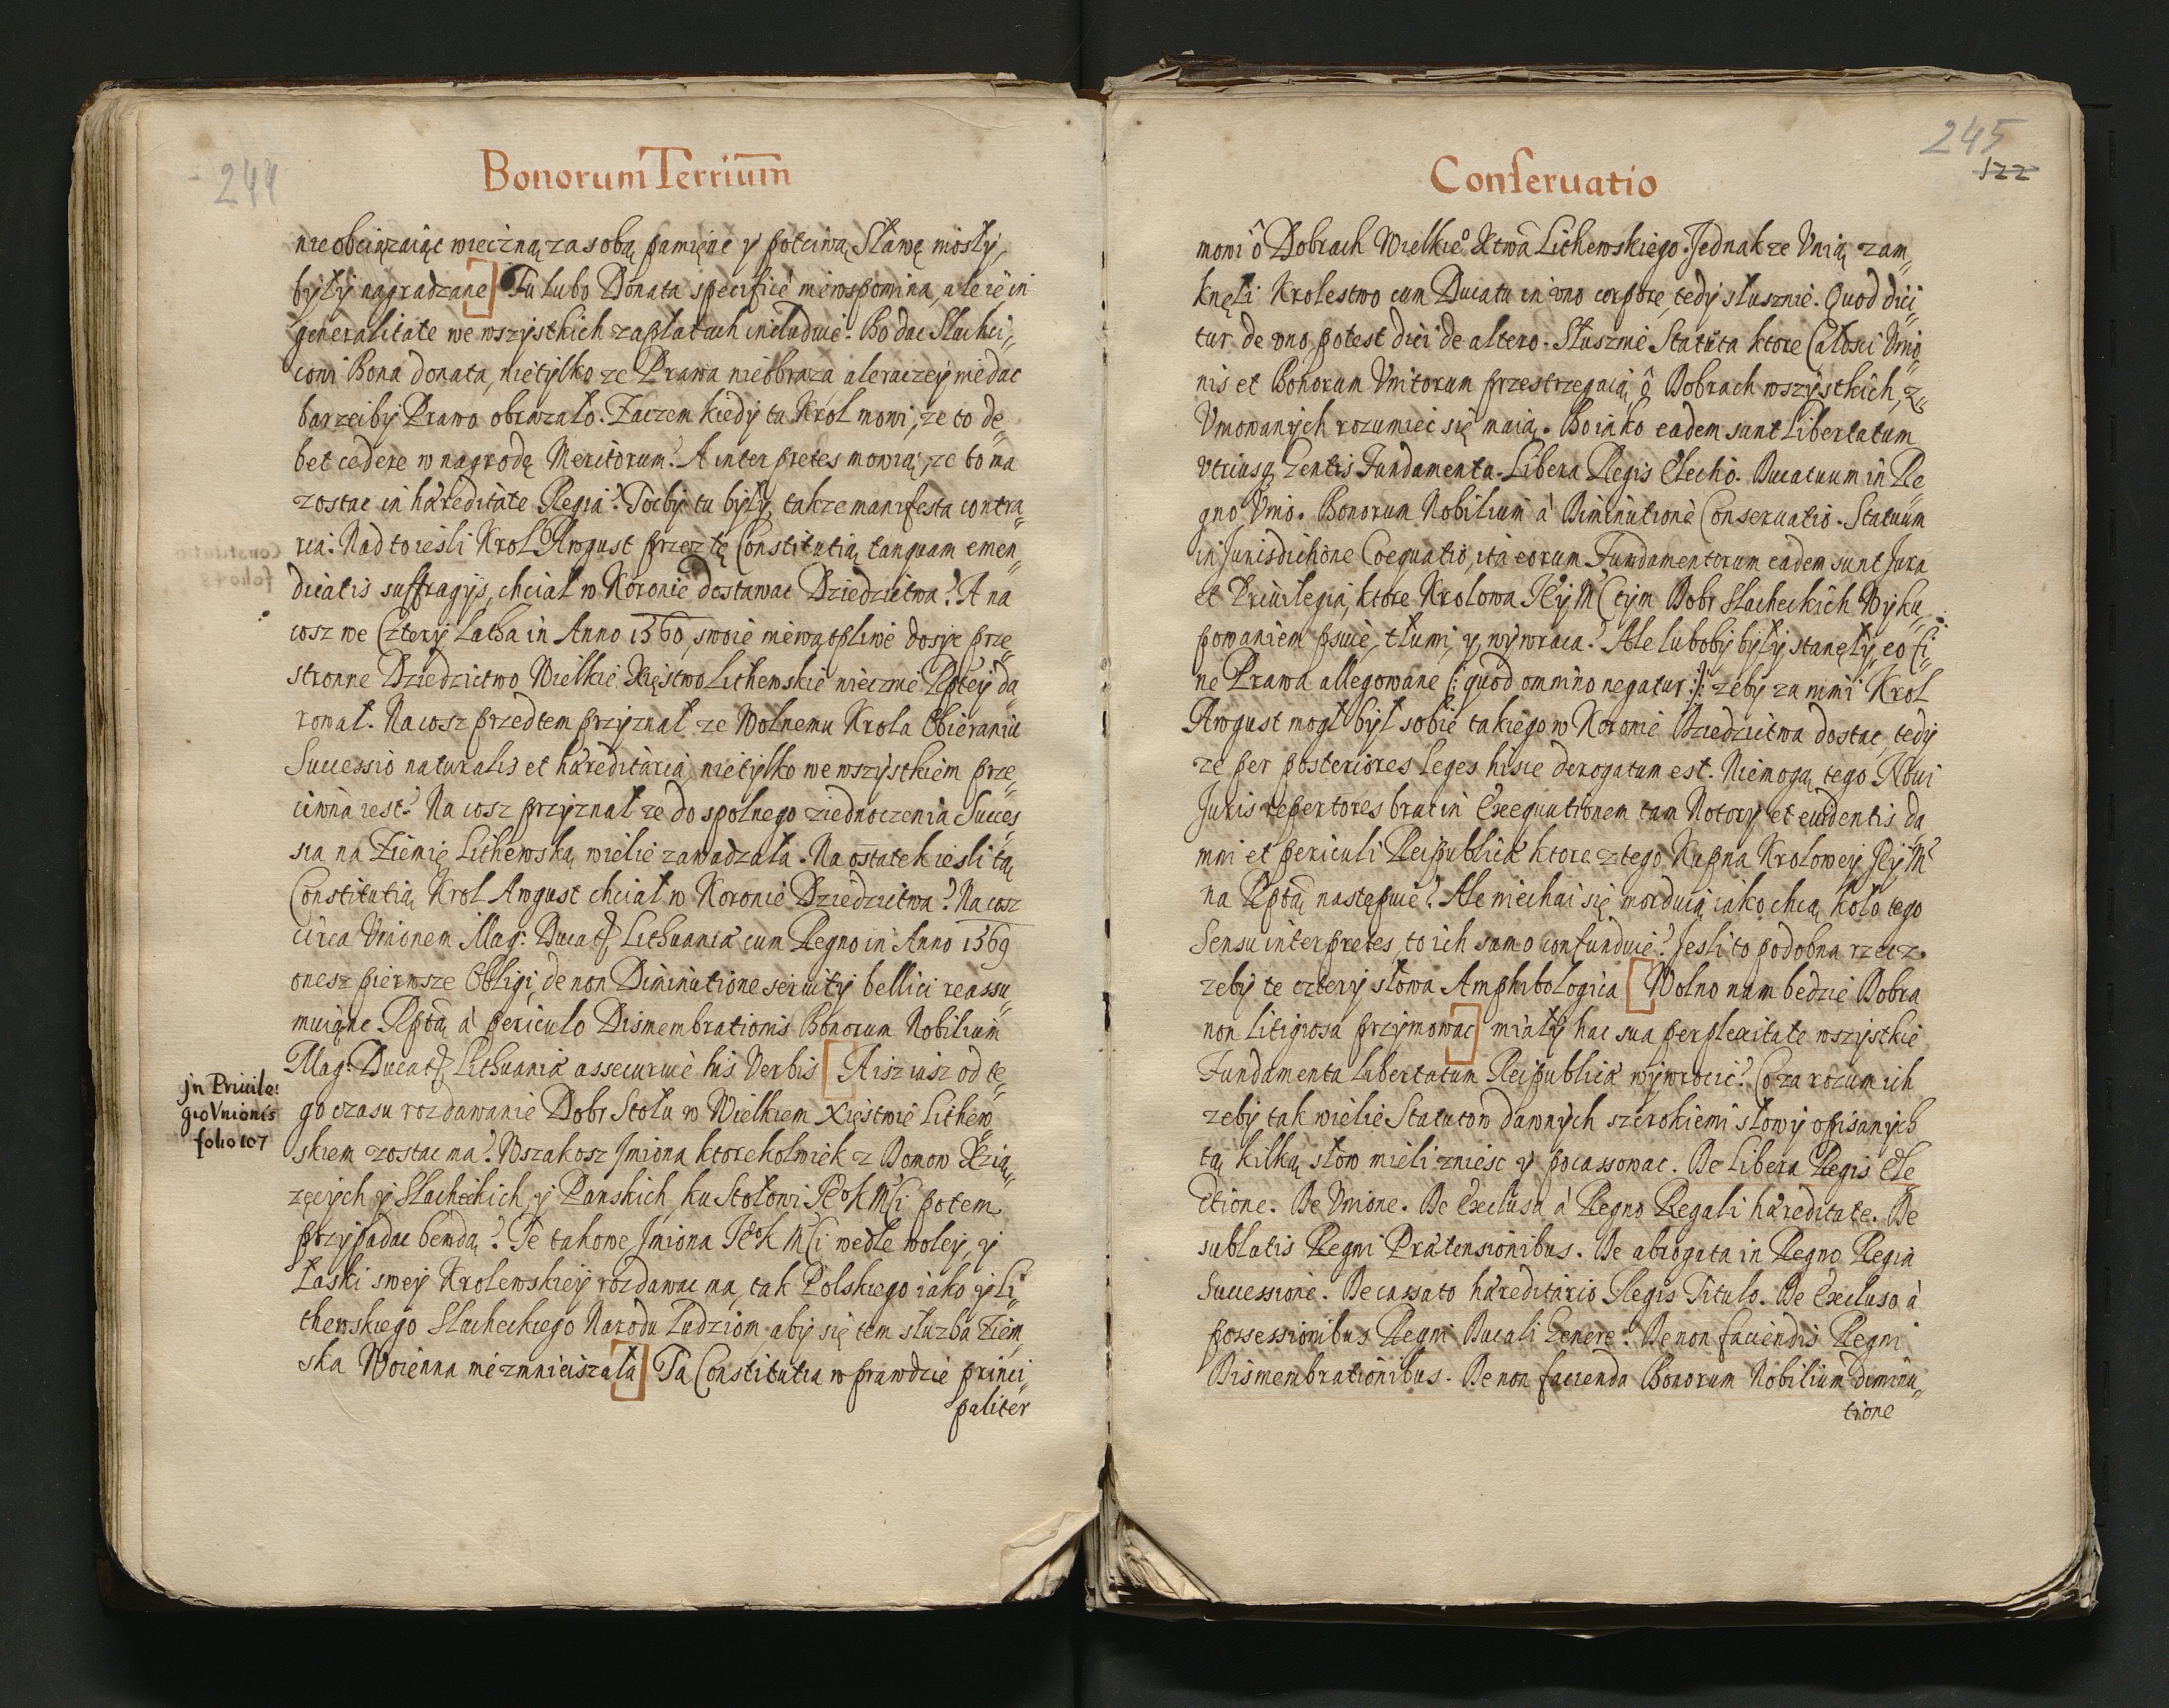 244
Bonorum Terrium̄
nieobciązaiąc wieczną za sobą pamięne y potciwą Sławę niosły,
były nagradzane] Tu lubo Donata specificè niewspomina, ale ie in
generalitate we wszystkich zapłatach includuie. Bo dac Slachci„
cowi Bona donata, nietylko ze Prawa nieobraza ale raczey niedac
barzeiby Prawo obrazało. Zaczem kiedy tu Krol mowi, ze to de„
bet cedere w nagrodę Meritorum? A interpretes mowią, ze to ma
zostac in hæreditate Regia? Tocby tu były, takze manifesta contra„
ria. Nad to iesli Krol August przez tę Constitutią tanquam emen„
dicatis suffragijs, chciał w Koronie dostawac Dziedzictwa? A na
cosz we Cztery Latha in Anno 1560, swoie niewątpliwe dosyc prze„
stronne Dziedzictwo Wielkie Xięstwo Lithewskie wiecznie Rptey da
rował. Na cosz przedtem przyznał ze Wolnemu Krola Obieraniu
Successio naturalis et hæreditaria, nietylko we wszystkiem prze„
ciwna iest? Na cosz przyznał ze do spolnego ziednoczenia Succes„
sia na Ziemię Lithewską wielie zawadzała. Na ostatek iesli tą
Constitutią Krol August chciał w Koronie Dziedzictwa? Na cosz
circa Unionem Mag: Ducatꝰ Lithuaniæ cum Regno in Anno 1569
onesz pierwsze Obligi, de non Diminutione seruitij bellici reassu„
muiąc Rptą à periculo Dismembrationis Bonorum Nobilium
Mag: Ducatꝰ Lithuaniæ assecuruie his Verbis [A isz iusz od te„
Jn Priuile:
gio Vnionis
folio 107
go czasu rozdawanie Dobr Stołu w Wielkiem Xięstwie Lithew„
skiem zostac ma? Wszakosz Jmiona ktorekolwiek z Domow Xzią„
zęcych y Slacheckich, y Panskich, ku Stołowi JEoK Mći potem
przypadac będą? Te takowe Jmiona JEoK Mći wedle woley, y
Łaski swey Krolewskiey rozdawac ma, tak Polskiego iako y Li„
thewskiego Slacheckiego Narodu Ludziom aby się tem słuzba Ziem„
ska Woienna nie zmnieiszała] Ta Constitutia w prawdzie princi„
paliter
245
122
Conseruatio
mowi ô Dobrach Wielkieo Xtwā Lithewskiego. Jednak ze Unią zam„
knęli Krolestwo cum Ducatu in vno corpore, tedy słusznie. Quod dici„
tur de vno, potest dici de altero. Słusznie Statuta ktore Całosci Unio„
nis et Bonorum Vnitorum przestrzegaią, ô Dobrach wszystkich, z„
Vniowanych rozumiec się maią. Bo iako eadem sunt Libertatum
vtriusq Gentis Fundamenta. Libera Regis Electio. Ducatuum in Re„
gno Vnio. Bonorum Nobilium à Diminutione Conseruatio. Statuum
in Jurisdictione Coequatio, ita eorum Fundamentorum eadem sunt Jura
et Priuilegia, ktore Krolowa JEy Mć tym Dobr Slacheckich Wyku„
powaniem psuie, tłumi, y wywraca? Ale luboby były stanęły, eo fi„
ne Prawa allegowane (: quod omnino negatur :) zeby za nimi Krol
August mogł był sobie takiego w Koronie Dziedzictwa dostac, tedy
ze per posteriores leges hisce derogatum est. Niemogą tego Noui
Juris repertores brac in Exequutionem tam Notory et euidentis da„
mni et periculi Reipublicæ ktore z tego Kupna Krolowey JEy Mć
na Rptą następuie? Ale niechai się morduią iako chcą koło tego
Sensu interpretes, to ich samo confunduie? Jesli to podobna rzecz
zeby te cztery słowa Amphibologica [Wolno nam bedzie Dobra
non litigiosa przymowac] miały hac sua perplexitate wszystkie
Fundamenta Libertatum Reipublicæ wywrocic? Co za rozum ich
zeby tak wielie Statutow dawnych szerokiemi słowy opisanych
tą kilką słow mieli zniesc y pocassowac. De Libera Regis Ele„
ctione. De Vnione. De Exclusa à Regno Regali hæreditate. De
sublatis Regni Prætensionibus. De abrogata in Regno Regia
Successione. De cassato hæreditario Regis Titulo. De Excluso à
possessionibus Regni Ducali Genere. De non faciendis Regni
Dismembrationibus. De non facienda Bonorum Nobilium diminu„
tione